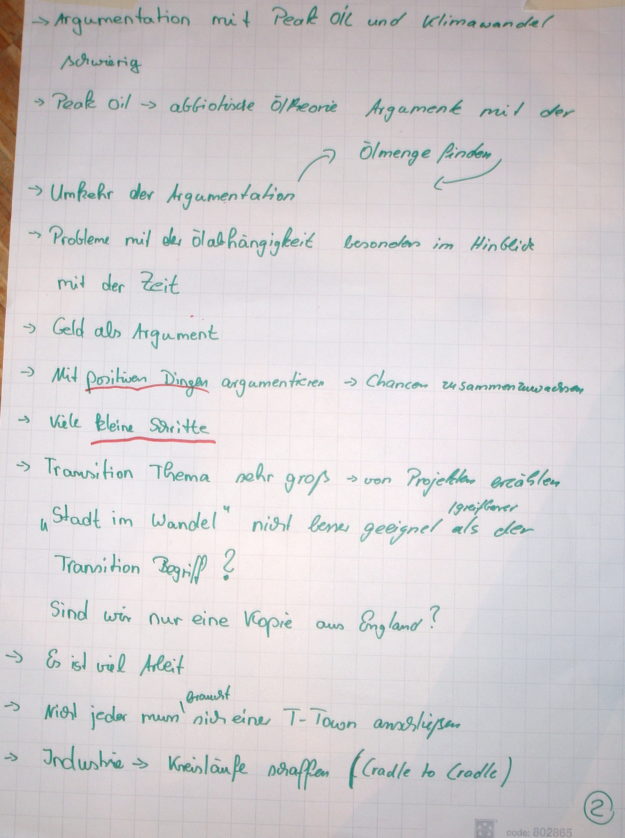 → Argumentation mit Peak Oil und Klimawandel
schwierig
→ Peak Oil → abbiotische Öltheorie Argument mit der
Ölmenge finden
→ Umkehr der Argumentation
→ Probleme mit der Ölabhängigkeit besonders im Hinblick
mit der Zeit
→ Geld als Argument
→ Mit positiven Dingen argumentieren → Chancen zusammenzuwachsen
→ Viele kleine Schritte
→ Transition Thema sehr groß → von Projekten erzählen
/greifbarer
"Stadt im Wandel" nicht besser geeignet als der
Transition Begriff?
Sind wir nur eine Kopie aus England?
→ Es ist viel Arbeit
braucht
→ Nicht jeder muss sich einer T-Town anschließen
→ Industrie → Kreisläufe schaffen (Cradle to Cradle)
2
code: 802865